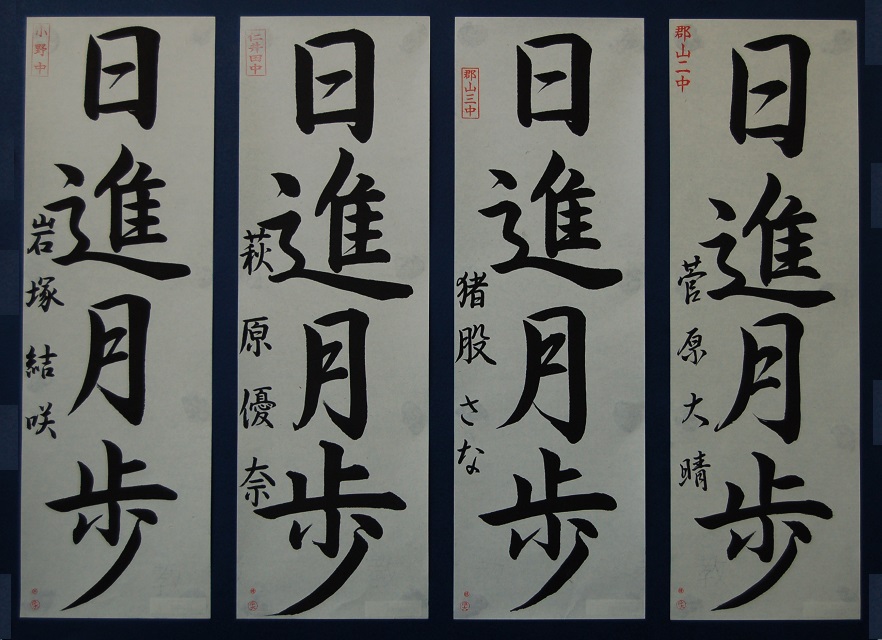 小野中
日進月歩
岩塚結咲
仁井田中
日進月歩
萩原優奈
郡山三中
日進月歩
猪股さな
郡山二中
日進月歩
菅原大晴